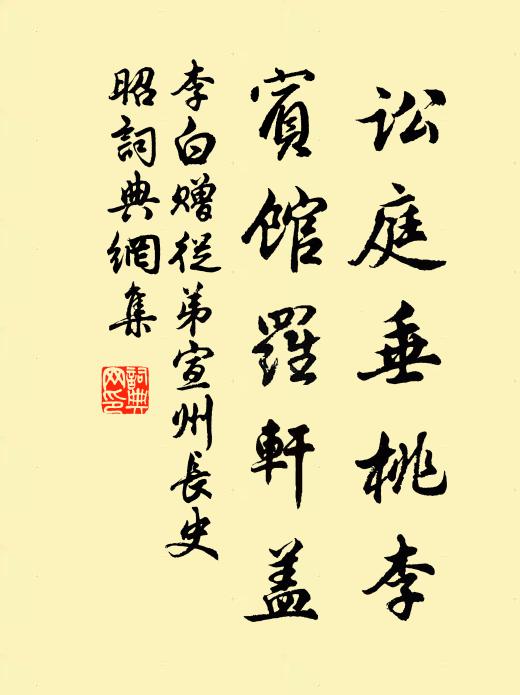 讼庭垂桃李
賓館羅軒盖
李白赠從弟宣州長史
昭詞典網集
詞典网印